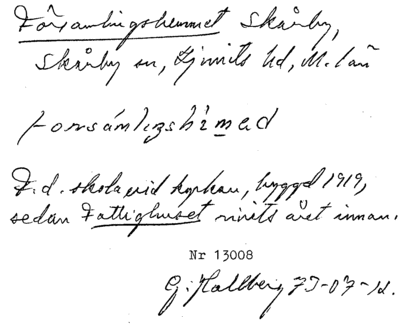 Församlingshemmet Skårby,
Skårby sn, Ljunits hd, M. län
forsámlıŋshɛ̀məd
F.d. skola vid kyrkan, byggd 1919,
sedan Fattighuset rivits året innan.
Nr 13008
G. Hallberg